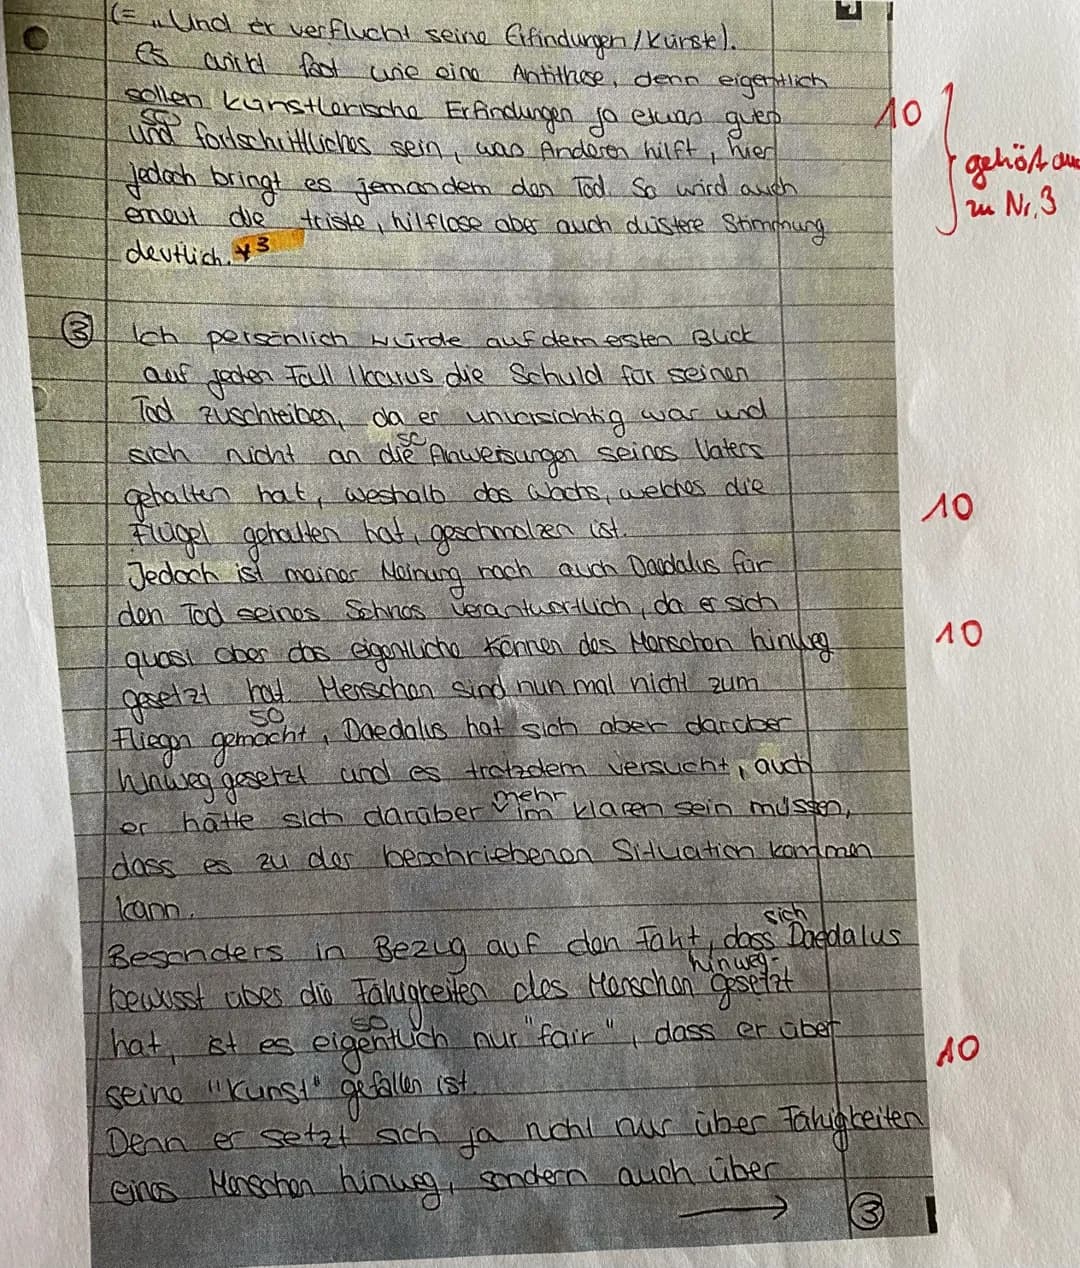 (= „Und er verflucht seine Erfindungen/Künste).
Es wirkt fast wie eine Antithese, denn eigentlich
sollen künstlerische Erfindungen ja etwas gutes
und fortschrittliches sein, was Anderen hilft, hier
jedoch bringt es jemandem den Tod. So wird auch
erneut die triste, hilflose aber auch düstere Stimmung
deutlich. *3
10
gehört
zu Nr. 3
③ Ich persönlich würde auf dem ersten Blick
auf jeden Fall Ikarus die Schuld für seinen
Tod zuschreiben, da er unvorsichtig war und
sich nicht an die Anweisungen seines Vaters
gehalten hat, weshalb das Wachs, welches die
Flügel gehalten hat, geschmolzen ist.
10
Jedoch ist meiner Meinung nach auch Daedalus für
den Tod seines Sohnes verantwortlich, da er sich
quasi über das eigentliche Können des Menschen hinweg
10
gesetzt hat. Menschen sind nun mal nicht zum
50
Fliegen gemacht, Daedalus hat sich aber darüber
hinweg gesetzt und es trotzdem versucht, auch
er hätte sich darüber mehr im klaren sein müssen,
dass es zu der beschriebenen Situation kommen
kann.
Besonders in Bezug auf den Fakt, dass sich Daedalus
bewusst über die Fähigkeiten des Menschen hinweg-gesetzt
hat, ist es eigentlich nur "fair", dass er über
seine "Kunst" gefallen ist.
10
Denn er setzt sich ja nicht nur über Fähigkeiten
eines Menschen hinweg, sondern auch über
→ ③